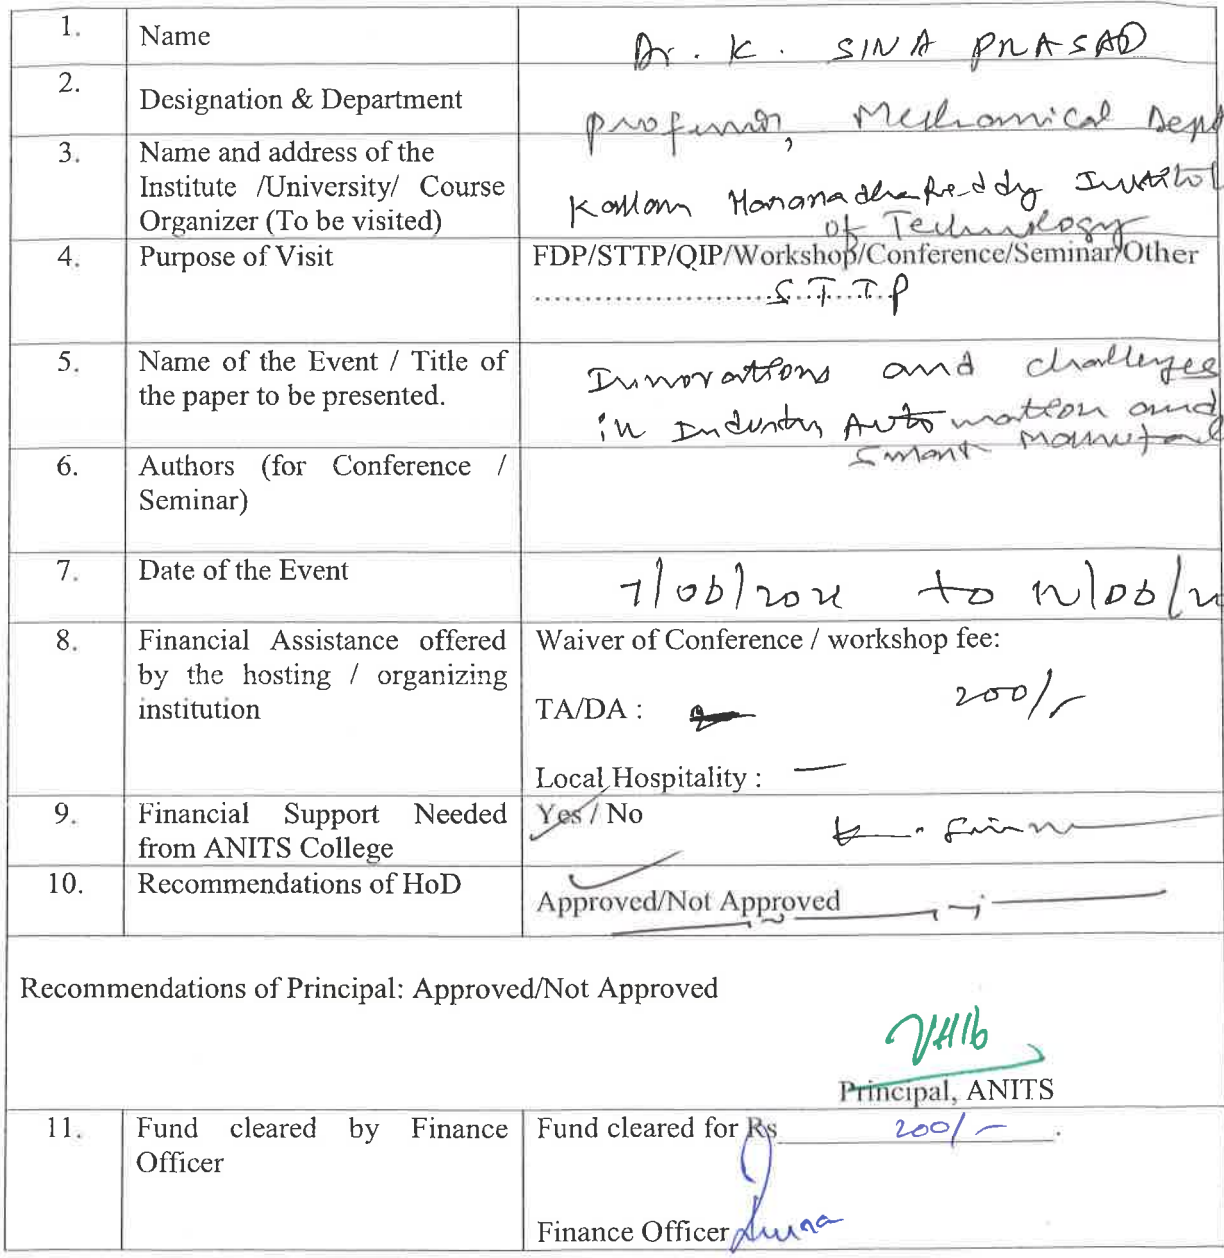 1. Name Dr. K. SIVA PRASAD
2. Designation & Department Professor, Mechanical Dept
3. Name and address of the
Institute /University/ Course
Organizer (To be visited)
Kallam Haranadha Reddy Institut
of Technology
4. Purpose of Visit FDP/STTP/QIP/Workshop/Conference/Seminar/Other
........................S.T.T.P
5. Name of the Event / Title of
the paper to be presented.
Innovations and challenges
in Industry Automation and
Smart Manufac
6. Authors (for Conference /
Seminar)
7. Date of the Event 7/06/2021 to 12/06/2
8. Financial Assistance offered
by the hosting / organizing
institution
Waiver of Conference / workshop fee:
200/-
TA/DA :
Local Hospitality : —
9. Financial Support Needed
from ANITS College
Yes / No
10. Recommendations of HoD Approved/Not Approved
Recommendations of Principal: Approved/Not Approved
Principal, ANITS
11. Fund cleared by Finance
Officer
Fund cleared for Rs 200/- .
Finance Officer